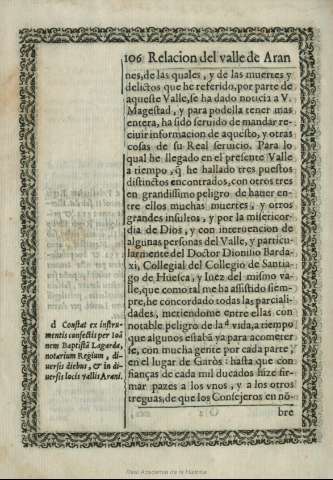 106 Relacion del valle de Aran
nes, de las quales, y de las muertes y
delictos que he referido, por parte de
aqueste Valle, se ha dado noticia a V.
Magestad, y para podella tener mas
entera, ha sido seruido de mandar re-
ciuir informacion de aquesto, y otras
cosas de su Real seruicio. Para lo
qual he llegado en el presente Valle
a tiempo, q̃ he hallado tres puestos
distinctos encontrados, con otros tres
en grandissimo peligro de hauer en-
tre ellos muchas muertes, y otros
grandes insultos, y por la misericor-
dia de Dios, y con interuencion de
algunas personas del Valle, y particu-
larmente del Doctor Dionisio Barda-
xi, Collegial del Collegio de Santia-
go de Huesca, y Iuez del mismo va-
lle, que como tal me ha assistido siem-
pre, he concordado todas las parciali-
dades, metiendome entre ellas con
notable peligro de la d vida, a tiempo
que algunos estabã ya para acometer
se, con mucha gente por cada parte,
en el lugar de Garòs: hasta que con
fianças de cada mil ducados hize fir-
mar pazes a los vnos, y a los otros
treguas, de que los Consejeros en nõ-
bre
d Constat ex instru-
mentis confectis per Ioã
nem Baptistã Lagarda,
notarium Regium, di-
uersis diebus, & in di-
uersis locis vallis Arani.
Real Academia de la Historia